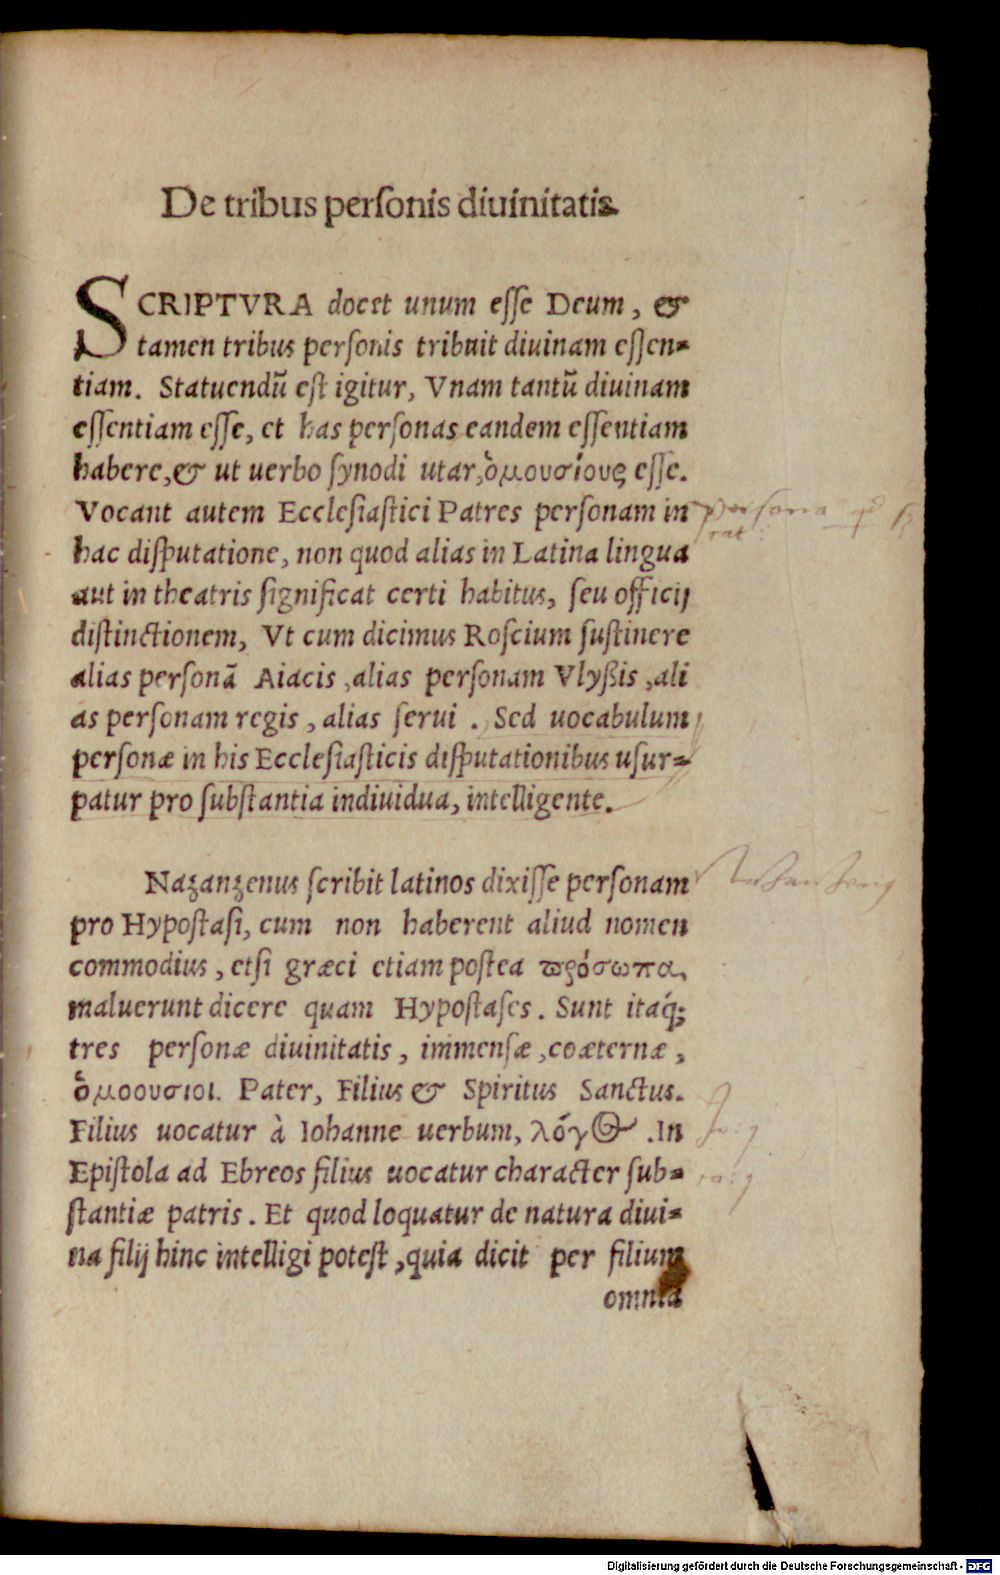 De tribus personis diuinitatis.
SCRIPTVRA docet unum esse Deum, &
tamen tribus personis tribuit diuinam essen-
tiam. Statuendũ est igitur, Vnam tantũ diuinam
essentiam esse, et has personas eandem essentiam
habere, & ut uerbo synodi utar, ὁμουσίους esse.
Vocant autem Ecclesiastici Patres personam in
hac disputatione, non quod alias in Latina lingua
aut in theatris significat certi habitus, seu officij
distinctionem, Vt cum dicimus Roscium sustinere
alias personã Aiacis, alias personam Vlyßis, ali
as personam regis, alias serui. Sed uocabulum
personæ in his Ecclesiasticis disputationibus usur-
patur pro substantia indiuidua, intelligente.
Nazanzenus scribit latinos dixisse personam
pro Hypostasi, cum non haberent aliud nomen
commodius, etsi græci etiam postea πρόσωπα,
maluerunt dicere quam Hypostases. Sunt itaq́;
tres personæ diuinitatis, immensæ, coæternæ,
ὁμοουσιοι. Pater, Filius & Spiritus Sanctus.
Filius uocatur à Iohanne uerbum, λόγος. In
Epistola ad Ebreos filius uocatur character sub-
stantiæ patris. Et quod loquatur de natura diui-
na filij hinc intelligi potest, quia dicit per filium
omnia
persona
Digitalisierung gefördert durch die Deutsche Forschungsgemeinschaft - DFG